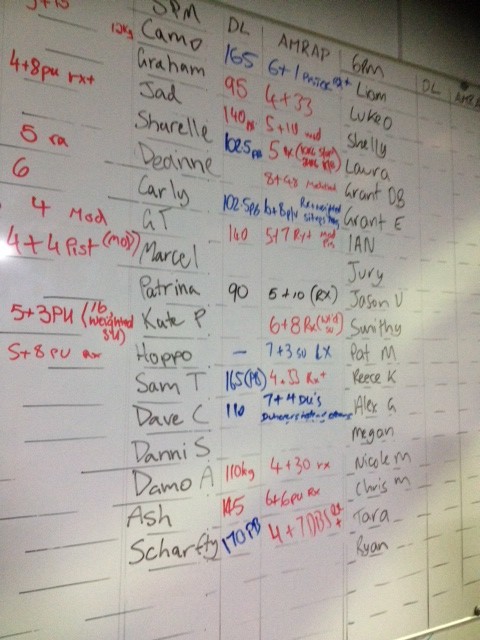 5PM DL AMRAP 6PM DL
12kg Camo 165 6+1 Liam
4+8pu rx+ Graham 95 4+33 Luke O
Jad 140 5+10 mod Shelly
Sharelle 102.5PB 5 rx Laura
5 rx Deanne 8+48 Grant DB
6 Carly 102.5PB 6+8pu Grant E
4 Mod GT 140 5+7 Rx+ IAN
4+4 Pist (mod) Marcel Jury
Patrina 90 5+10 (RX) Jason V
5+3PU (16 weighted SU) Kate P. 6+8 Rx Smithy
5+8 PU rx Hoppo – 7+3 SU Pat M
Sam T 165(PB) 4.33 Rx+ Reece K
Dave C 110 7+4 DU's Alex G
Danni S Megan
Damo A 110kg 4+30 rx Nicole M
Ash 145 6+6pu Rx Chris M
Scharffy 170PB 4+7DBS Rx+ Tara
Ryan